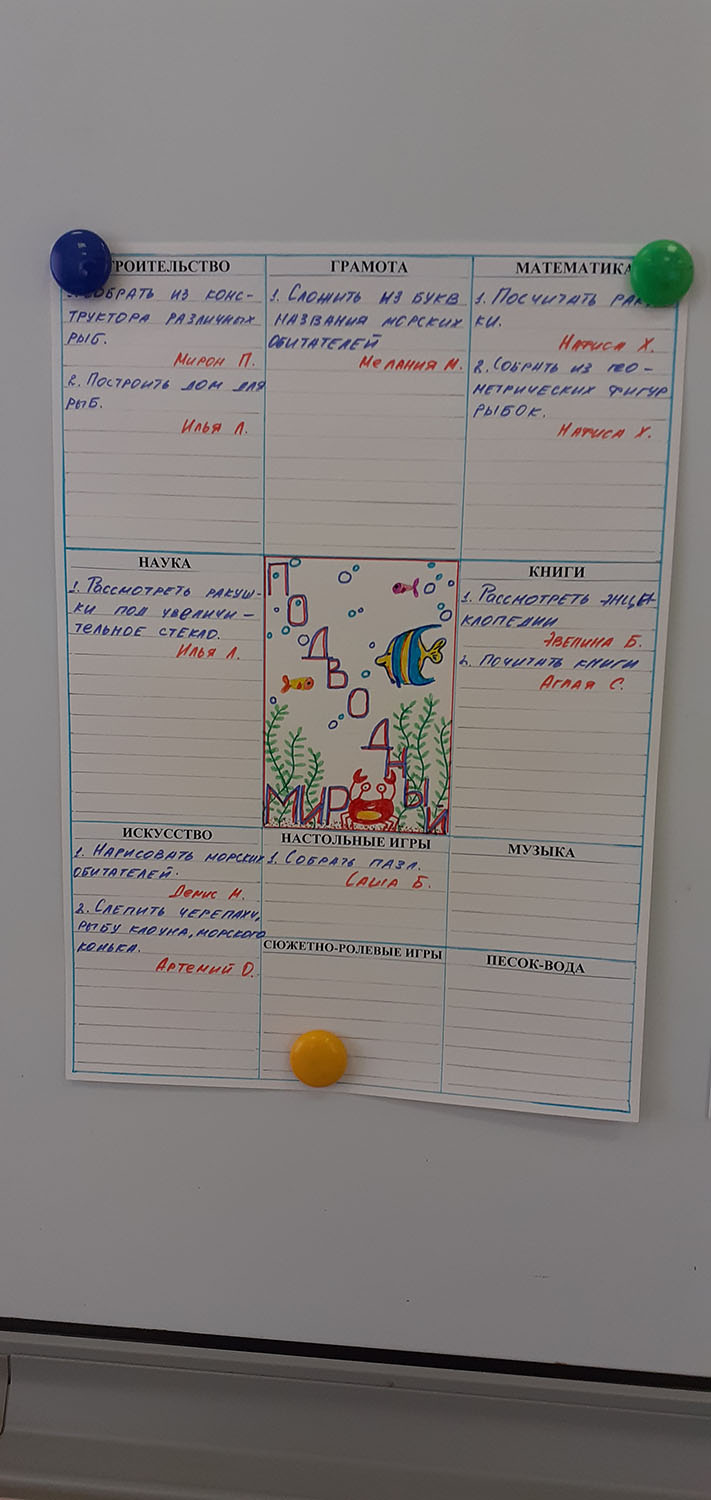 ТРОИТЕЛЬСТВО
ОБРАТЬ ИЗ КОНС-
ТРУКТОРА РАЗЛИЧНЫХ
РЫБ.
Мирон П.
2. ПОСТРОИТЬ ДОМ ДЛЯ
РЫБ.
Илья Л.
ГРАМОТА
1. СЛОЖИТЬ ИЗ БУКВ
НАЗВАНИЯ МОРСКИХ
ОБИТАТЕЛЕЙ
Мелания М.
МАТЕМАТИКА
1. ПОСЧИТАТЬ РАКУ
КИ.
Нафиса Х.
2. СОБРАТЬ ИЗ ГЕО-
МЕТРИЧЕСКИХ ФИГУР
РЫБОК.
Нафиса Х.
НАУКА
1. РАССМОТРЕТЬ РАКУШ-
КИ ПОД УВЕЛИЧИ-
ТЕЛЬНОЕ СТЕКЛО.
Илья Л.
ПОДВОДНЫЙ
МИР
КНИГИ
1. РАССМОТРЕТЬ ЭНЦИ-
КЛОПЕДИИ
ЭВЕЛИНА Б.
2. ПОЧИТАТЬ КНИГИ
Аглая С.
ИСКУССТВО
1. НАРИСОВАТЬ МОРСКИХ
ОБИТАТЕЛЕЙ.
Денис М.
2. СЛЕПИТЬ ЧЕРЕПАХУ,
РЫБУ КЛОУНА, МОРСКОГО
КОНЬКА.
Артемий О.
НАСТОЛЬНЫЕ ИГРЫ
1. СОБРАТЬ ПАЗЛ.
Саша Б.
МУЗЫКА
СЮЖЕТНО-РОЛЕВЫЕ ИГРЫ
ПЕСОК-ВОДА